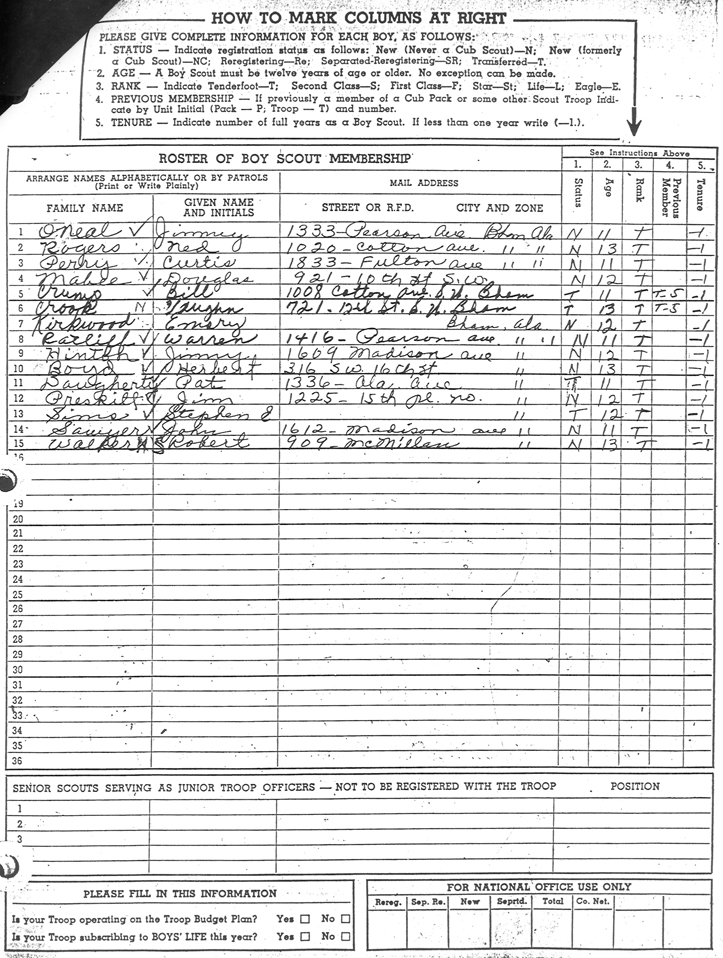 HOW TO MARK COLUMNS AT RIGHT
PLEASE GIVE COMPLETE INFORMATION FOR EACH BOY, AS FOLLOWS:
1. STATUS — Indicate registration status as follows: New (Never a Cub Scout)—N; New (formerly
a Cub Scout)—NC; Reregistering—Re; Separated-Reregistering—SR; Transferred—T.
2. AGE — A Boy Scout must be twelve years of age or older. No exception can be made.
3. RANK — Indicate Tenderfoot—T; Second Class—S; First Class—F; Star—St; Life—L; Eagle—E.
4. PREVIOUS MEMBERSHIP — If previously a member of a Cub Pack or some other Scout Troop Indi-
cate by Unit Initial (Pack — P; Troop — T) and number.
5. TENURE — Indicate number of full years as a Boy Scout. If less than one year write (—1.).
ROSTER OF BOY SCOUT MEMBERSHIP
See Instructions Above
1. 2. 3. 4. 5.
ARRANGE NAMES ALPHABETICALLY OR BY PATROLS
(Print or Write Plainly)
MAIL ADDRESS
FAMILY NAME GIVEN NAME AND INITIALS STREET OR R.F.D. CITY AND ZONE
Status Age Rank Previous Member Tenure
1 O'Neal ✓ Jimmy 1333 - Pearson Ave Bham Ala N 11 T -1
2 Rogers Ned 1020 - Cotton ave. " " N 13 T -1
3 Perry ✓ Curtis 1833 - Fulton ave " " N 11 T -1
4 ✓ Douglas 921 - 10th St S.W. N 12 T -1
5 Crump ✓ Bill 1008 Cotton Ave. S.W. Bham T 11 T T-5 -1
6 Crook N Vaughn 721 - St. S.W. Bham T 13 T T-5 -1
7 Kirkwood Emery Bham, Ala. N 12 T -1
8 Ratliff ✓ Warren 1416 - Pearson ave " " N 11 T -1
9 ✓ Jimmy 1609 Madison ave " N 12 T -1
10 Boyd ✓ Herbert 316 S.W. 16th St " N 13 T -1
11 Daugherty Pat 1336 - Ala. Ave " T 11 T -1
12 Jim 1225 - 15th pl. no. " N 12 T -1
13 Sims ✓ Stephen E " T 12 T -1
14 Sawyer ✓ John 1612 - Madison ave " N 11 T -1
15 Walker Robert 909 - McMillan " N 13 T -1
16
19
20
21
22
23
24
25
26
27
28
29
30
31
32
33
34
35
36
SENIOR SCOUTS SERVING AS JUNIOR TROOP OFFICERS — NOT TO BE REGISTERED WITH THE TROOP POSITION
1
2
3
PLEASE FILL IN THIS INFORMATION
Is your Troop operating on the Troop Budget Plan? Yes ☐ No ☐
Is your Troop subscribing to BOYS' LIFE this year? Yes ☐ No ☐
FOR NATIONAL OFFICE USE ONLY
Rereg. Sep. Re. New Seprtd. Total Co. Net.